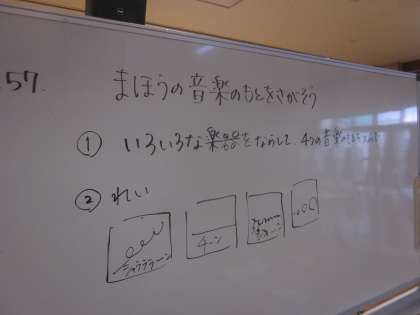 57.
まほうの音楽のもとをさがそう
① いろいろな楽器をならして、4つの音楽
② れい
シャララーン
チーン